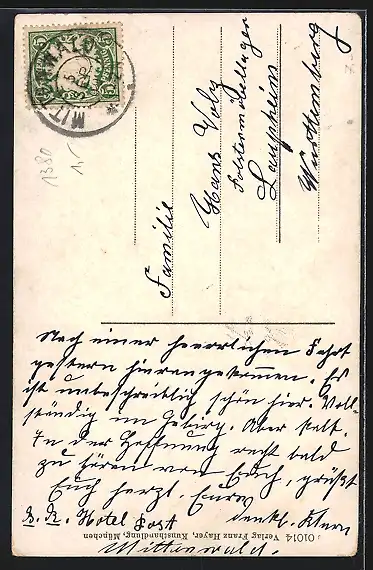 MITTENWALD
5 5
1380
Familie
Hans Volz
Polstermöbellager
Laupheim
Württemberg
Nach einer herrlichen Fahrt
gestern hier angekommen. Es
ist unbeschreiblich schön hier. Voll-
ständig im Gebirg. Aber kalt.
In der Hoffnung recht bald
zu hören von Euch, grüßt
Euch herzl. Eure
dankb. Eltern
z. Z. Hotel Post
Mittenwald.
01014 Verlag Franz Hayer, Kunsthandlung, München